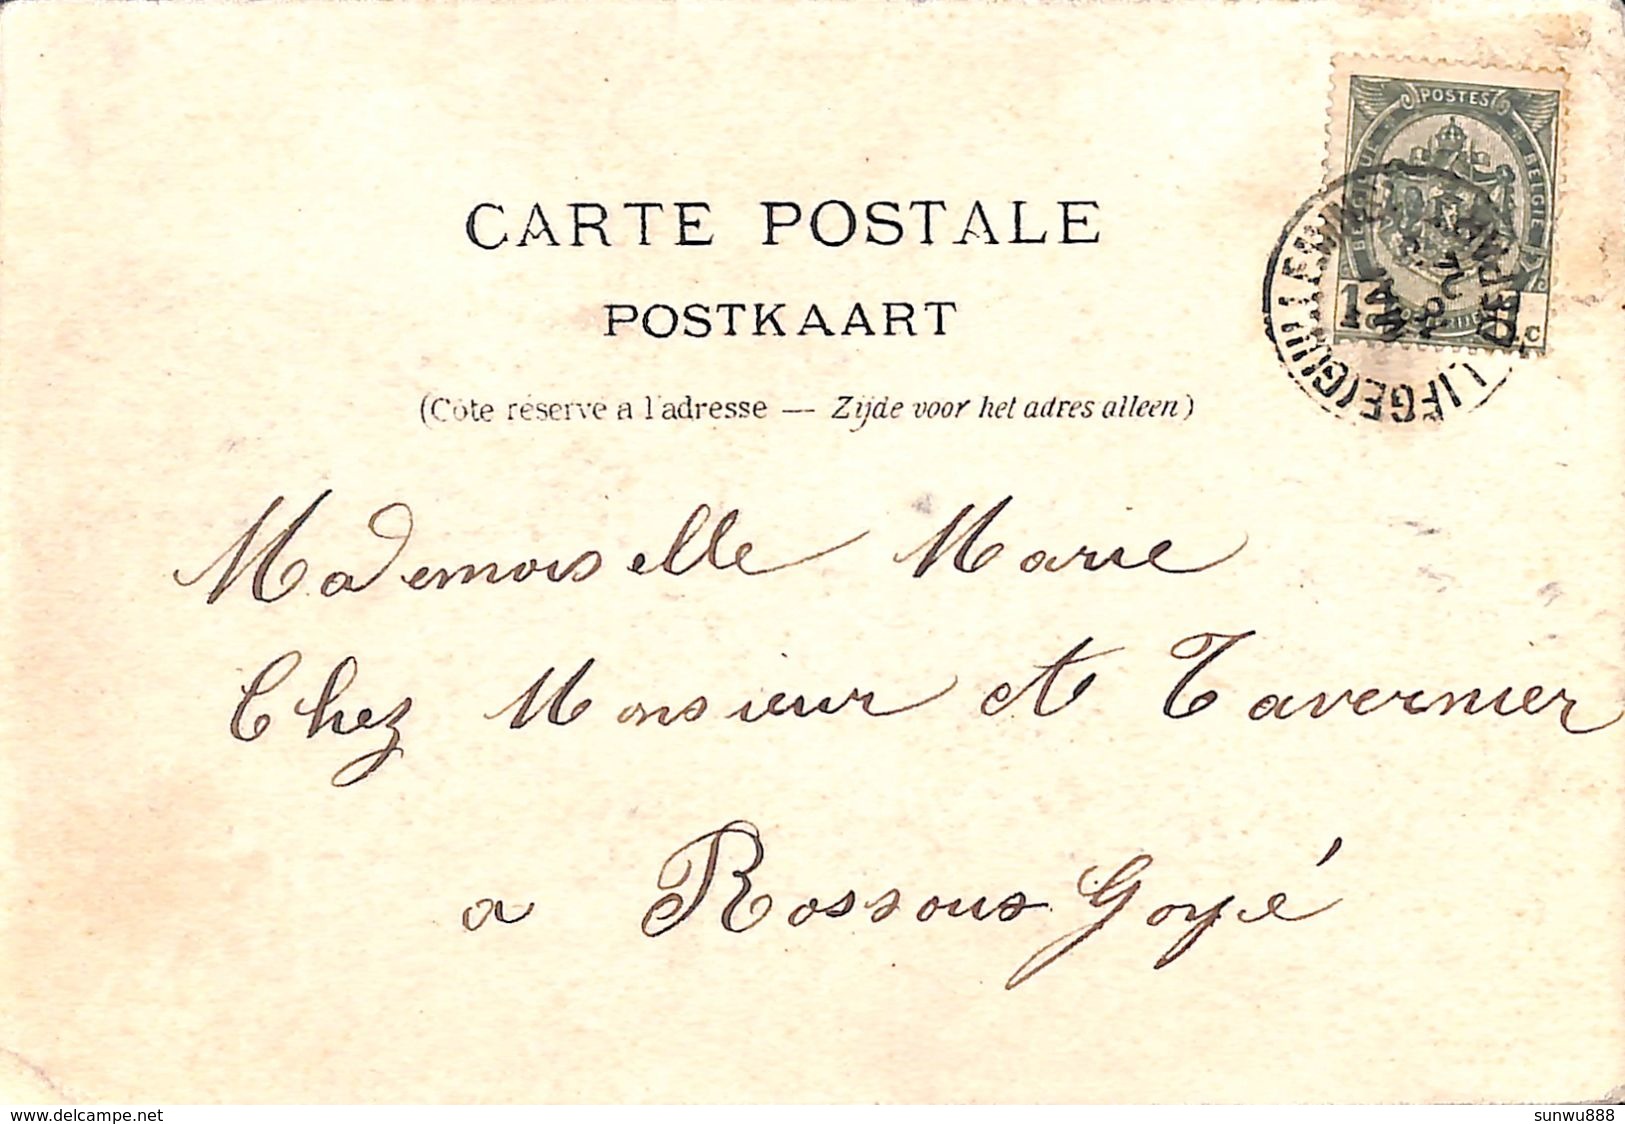 POSTES
BELGIQUE
BELGIE
CARTE POSTALE
POSTKAART
LIEGE (GUILLEMINS)
DEPART
(Côte réservé a l'adresse — Zijde voor het adres alleen)
Mademoiselle Marie
Chez Monsieur et Tavernier
a Rossous Goyé
www.delcampe.net
sunwu888